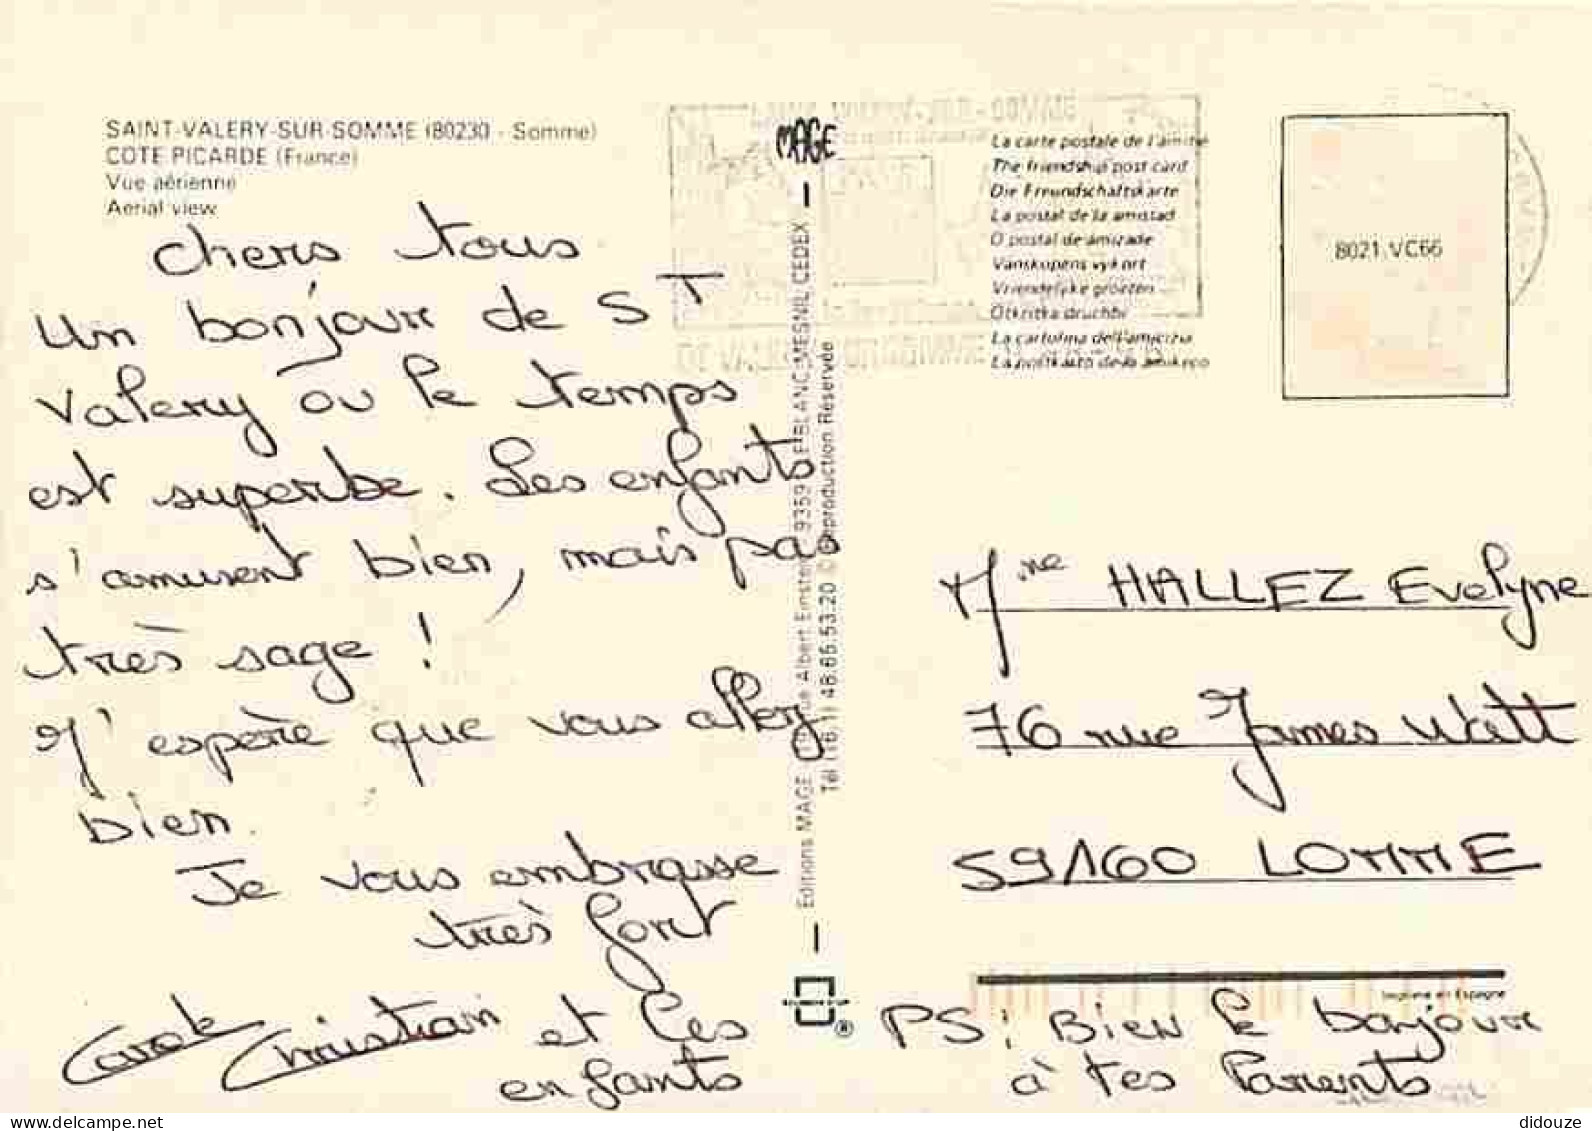 SAINT-VALERY-SUR-SOMME (80230 - Somme)
COTE PICARDE (France)
Vue aérienne
Aerial view
chers tous
Un bonjour de ST
Valery ou le temps
est superbe. Les enfants
s'amusent bien, mais pas
très sage !
J'espère que vous allez
bien.
Je vous embrasse
très fort
Carole Christian et les
enfants
MAGE
Editions MAGE rue Albert Einstein 9359 LE BLANC-MESNIL CEDEX
Tél (16.1) 48.65.53.20 © Reproduction Réservée
®
La carte postale de l'amitié
The friendship post card
Die Freundschaftskarte
La postal de la amistad
O postal de amizade
Vanskapens vykort
Vriendelijke groeten
Otkritka druchbi
La cartolina dell'amicizia
La postkarto de la amikeco
8021.VC66
Mme HALLEZ Evelyne
76 rue James Watt
59160 LOMME
Imprimé en Espagne
PS : Bien le bonjour
à tes Parents
didouze